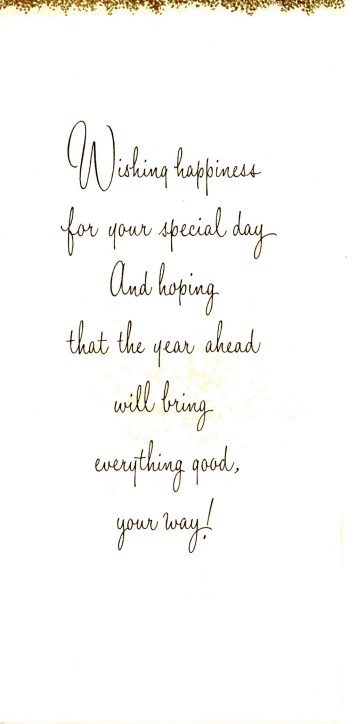 Wishing happiness
for your special day
And hoping
that the year ahead
will bring
everything good,
your way!